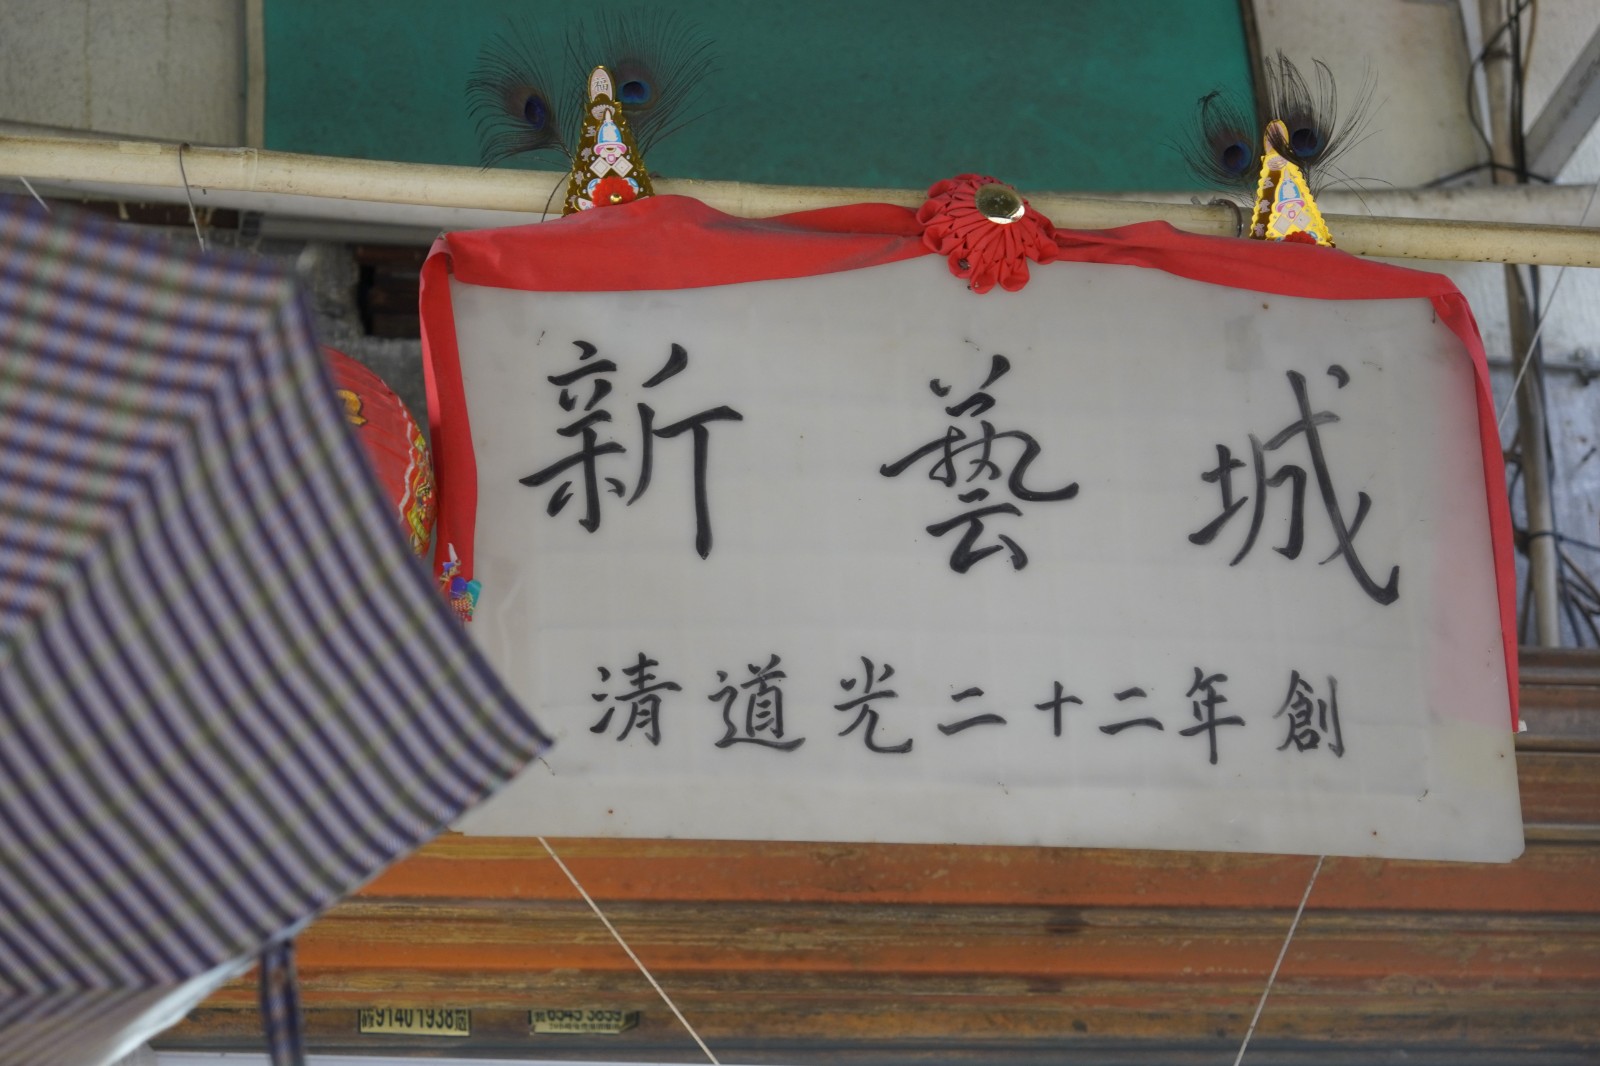 新藝城
清道光二十二年創
91401938
6345 3859